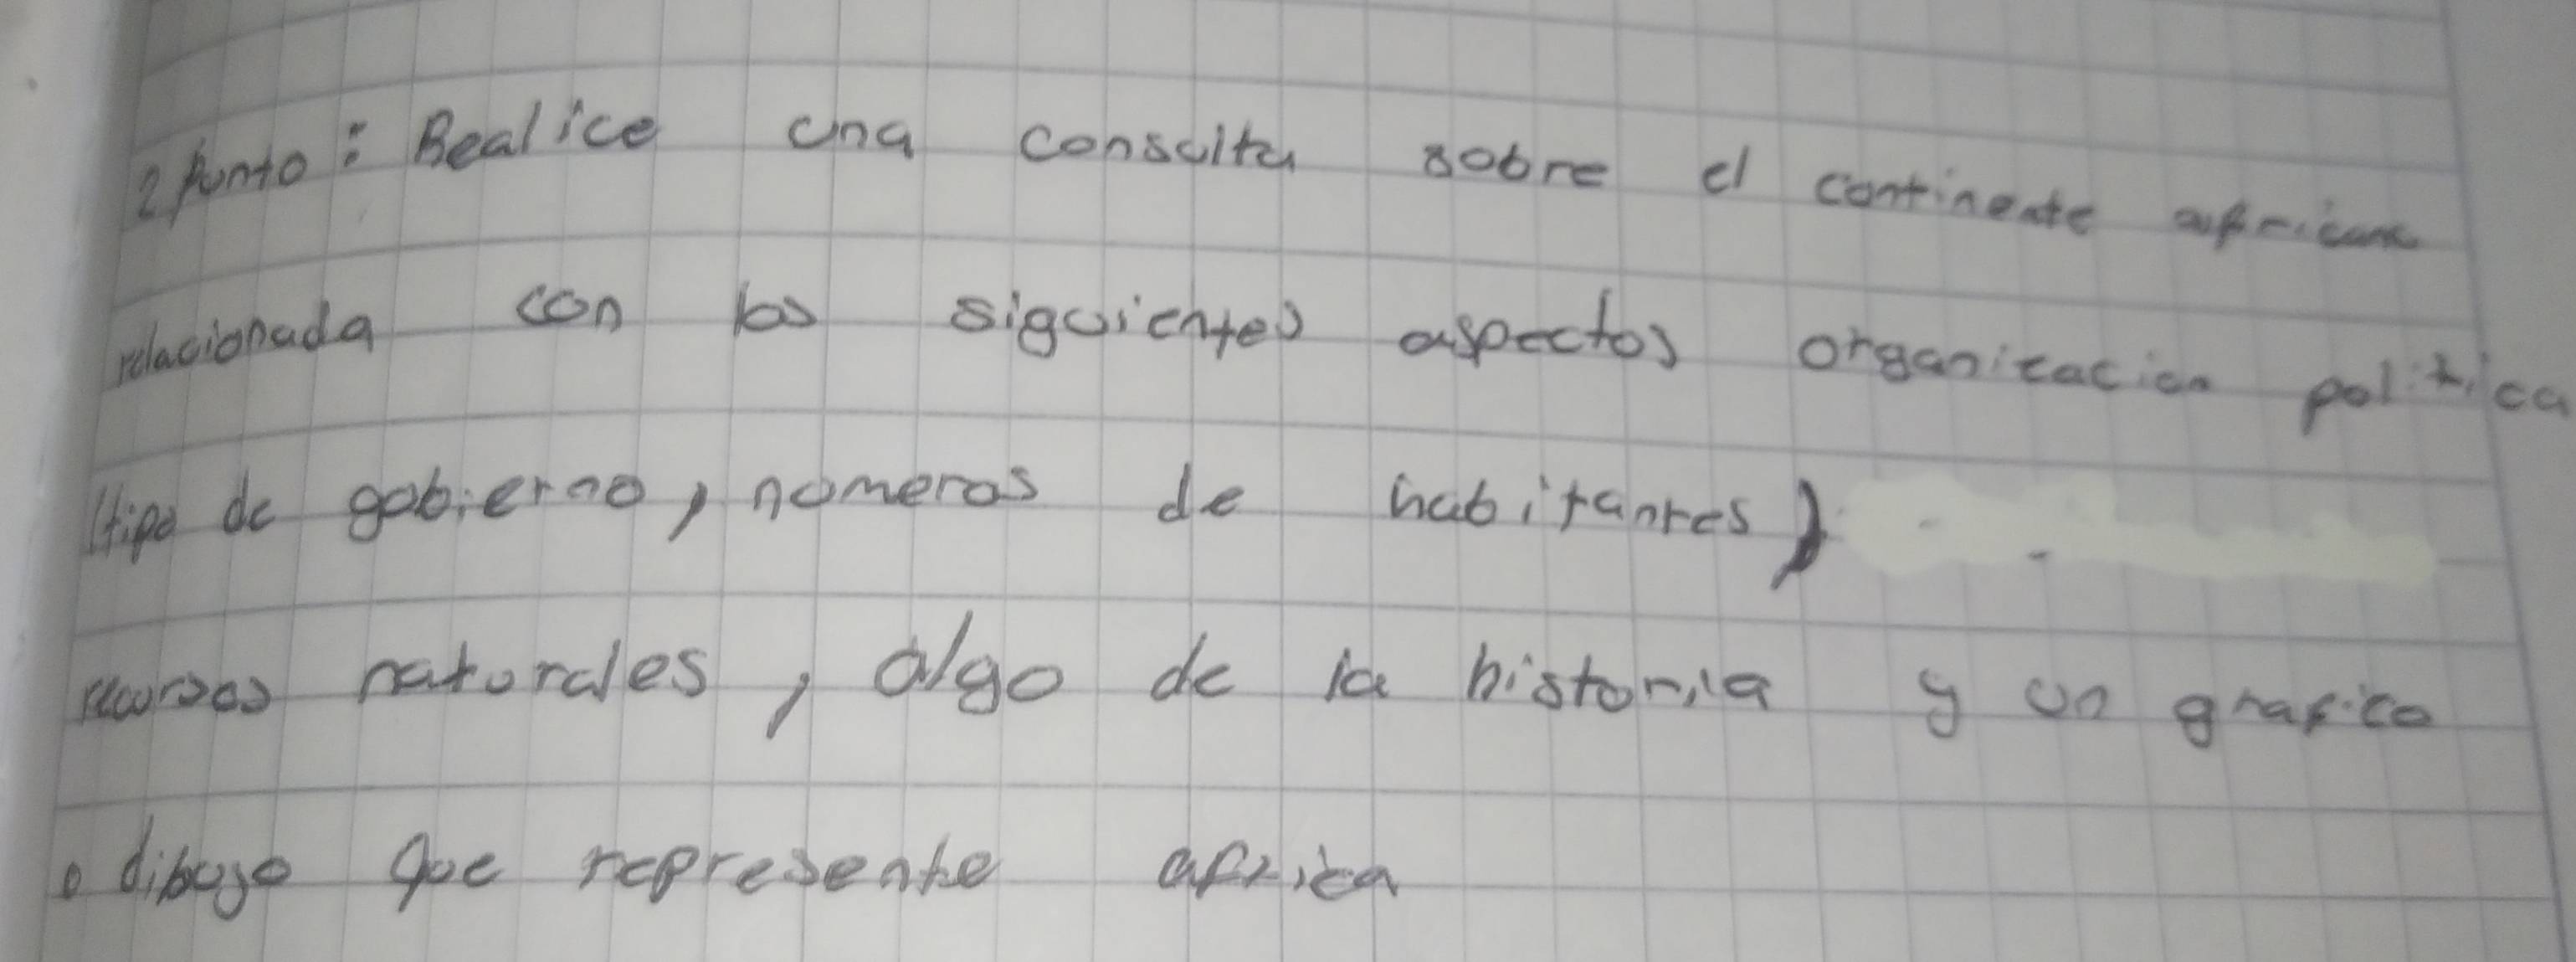 2 punto: Realice una consulta sobre el continente africano
relacionada con los siguientes aspectos organizacion politica
(tipo de gobierno, numeros de habitantes)
recursos naturales, algo de la historia y un grafico
o dibujo que represente africa